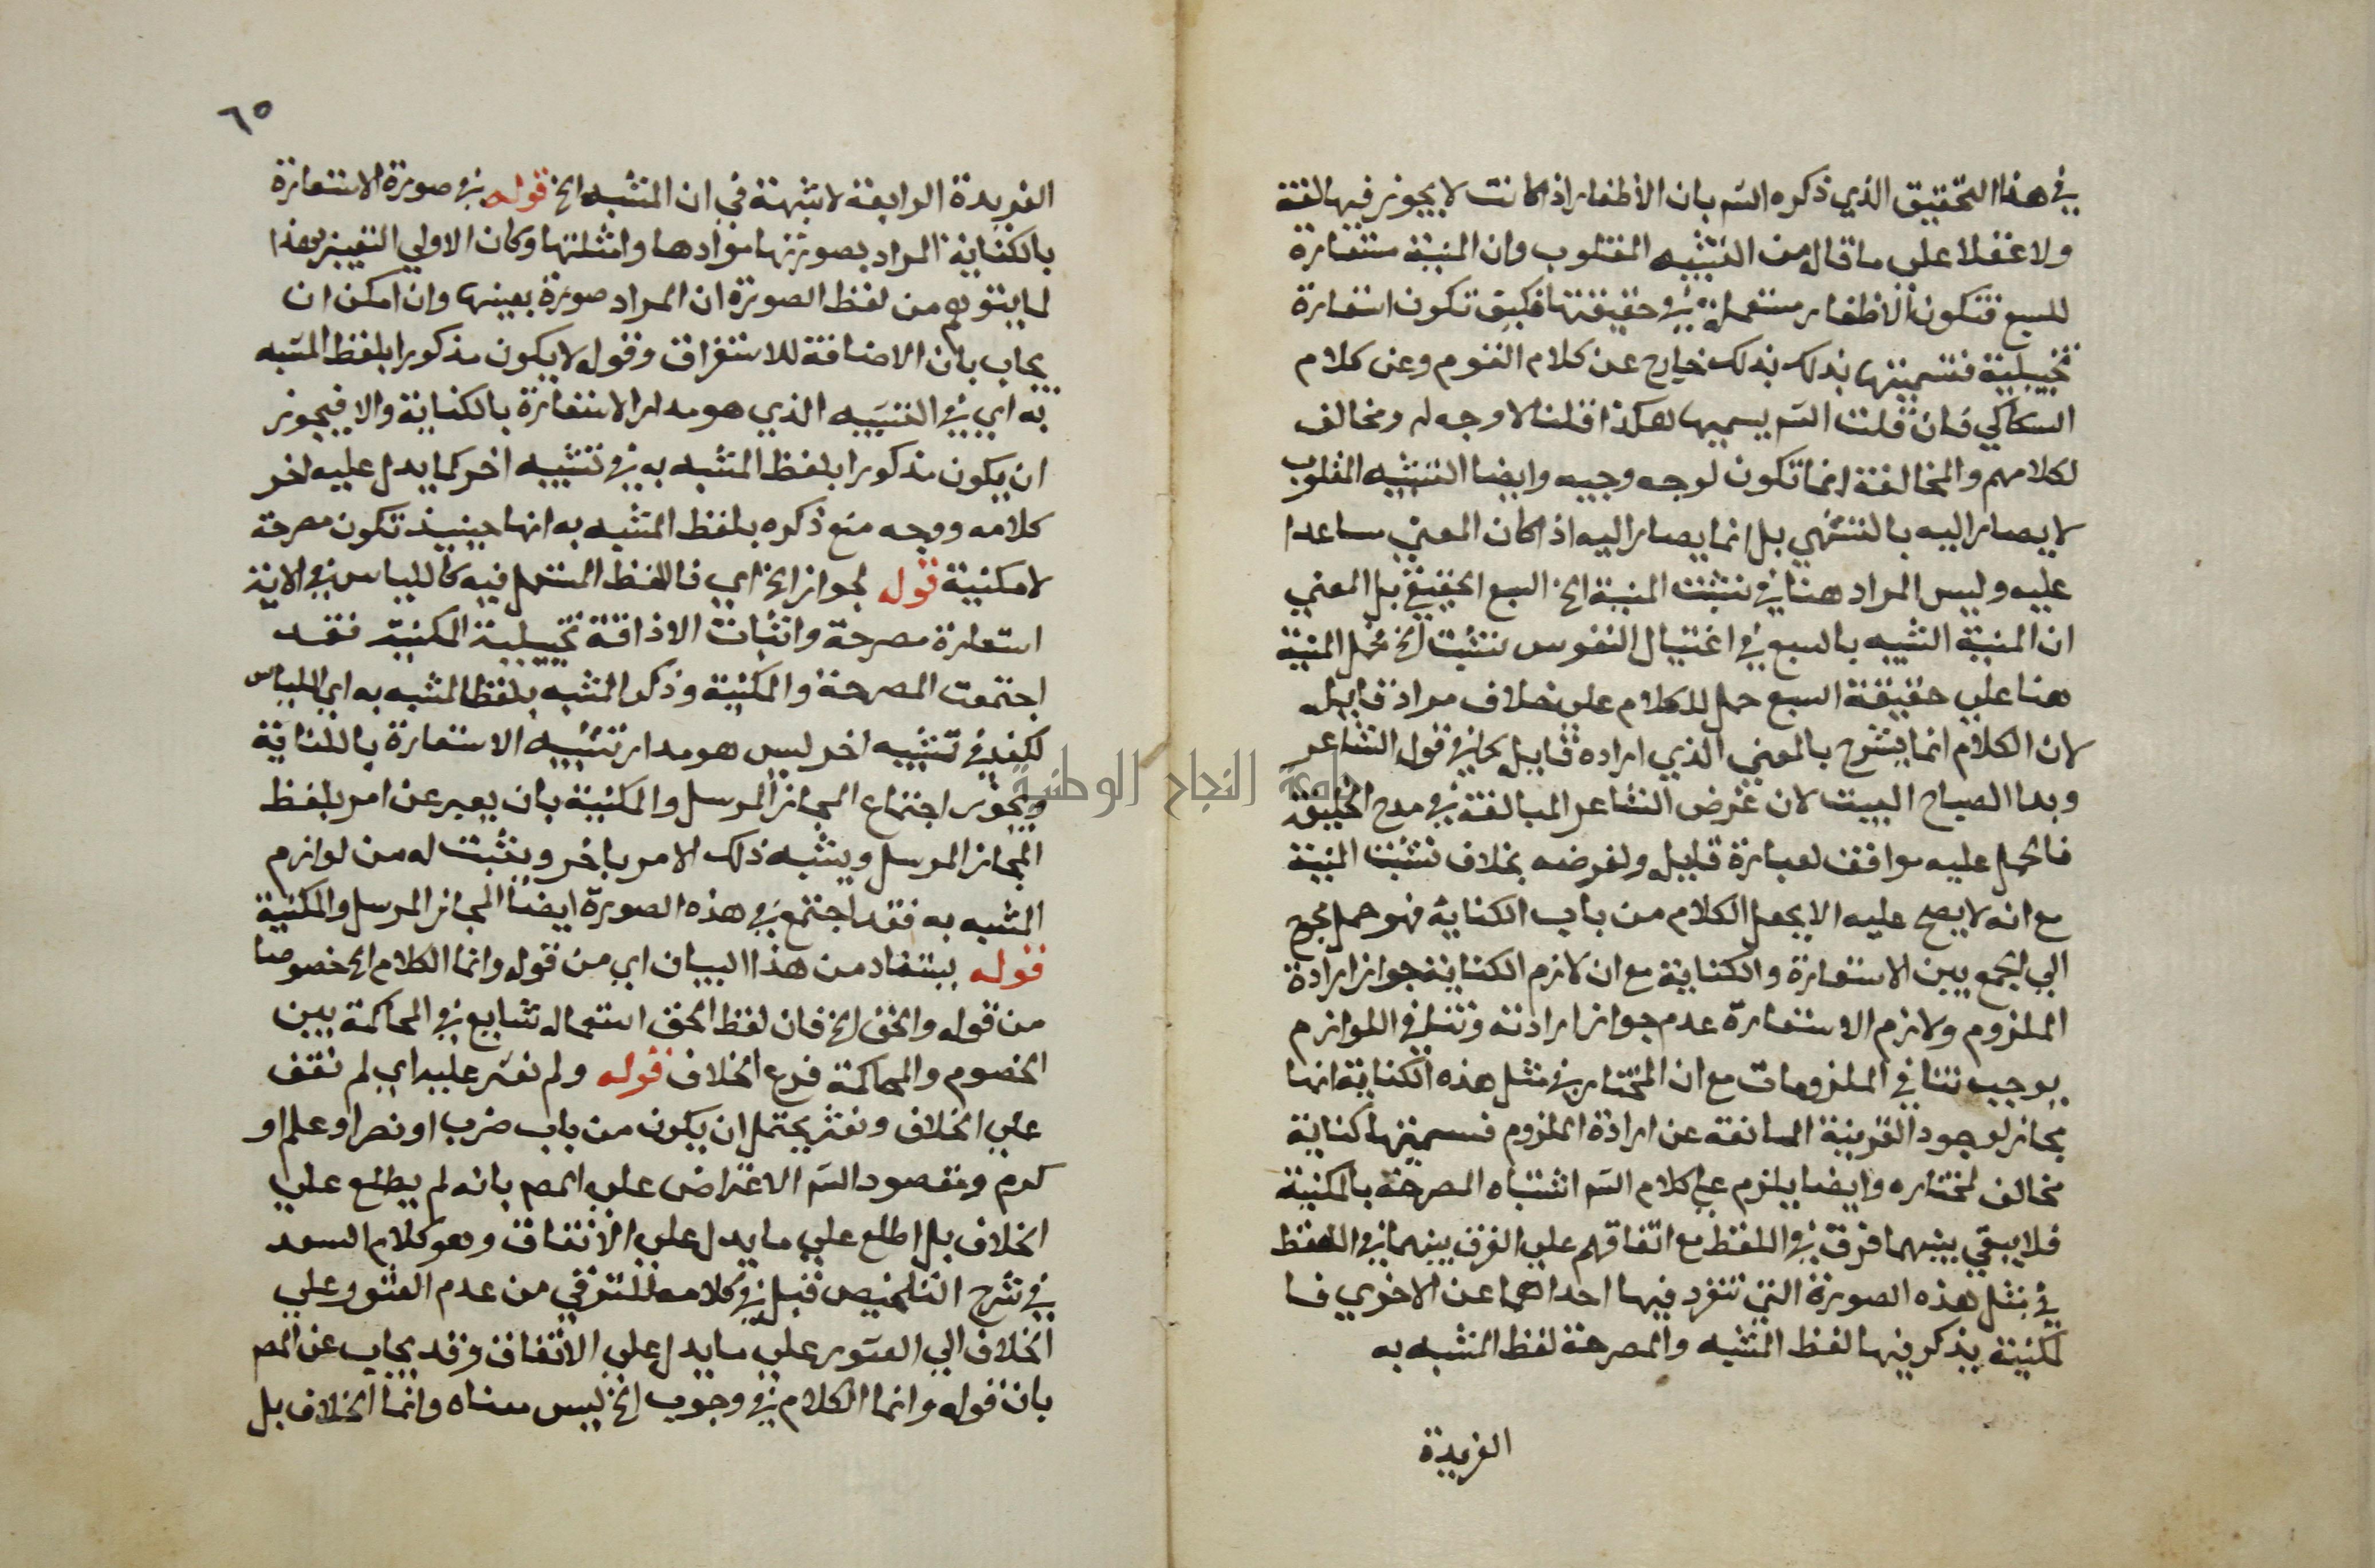 في هذا التحقيق الذي ذكره الشم بان الاظفار اذا كانت لا يجوز فيها لغة
ولا عقلا علي ما قاله من التشبيه المقلوب وان المنية مستعارة
للسبع فتكون الاظفار مستعملة في حقيقتها فكيف تكون استعارة
تخييلية فتسميتها بذلك بذلك خارج عن كلام القوم وعن كلام
السكاكي فان قلت الشم يسميها هكذا قلنا لا وجه له ومخالف
لكلامهم والمخالفة انما تكون لوجه وجيه وايضا التشبيه المقلوب
لا يصار اليه بالتشهي بل انما يصار اليه اذا كان المعني مساعدا
عليه وليس المراد هنا في نشبت المنية الخ السبع الحقيقي بل المعني
ان المنية الشبيه بالسبع في اغتيال النفوس نشبت الخ فحمل المنية
هنا علي حقيقة السبع حمل للكلام علي خلاف مراد قايله
لان الكلام انما يشرح بالمعني الذي اراده قايله كما في قول الشاعر
وبدا الصباح البيت لان غرض الشاعر المبالغة في مدح الخليفة
فالحمل عليه موافق لعبارة قايله ولغرضه بخلاف نشبت المنية
مع انه لا يصح عليه الا بجعل الكلام من باب الكناية فهو حمل محوج
الي الجمع بين الاستعارة والكناية مع ان لازم الكناية جواز ارادة
الملزوم ولازم الاستعارة عدم جواز ارادته وتنافي اللوازم
يوجب تنافي الملزومات مع ان المختار في مثل هذه الكناية انها
مجاز لوجود القرينة المانعة عن ارادة الملزوم فتسميتها كناية
مخالف لمختاره وايضا يلزم علي كلام الشم اشتباه المصرحة بالمكنية
فلا يبقي بينهما فرق في اللفظ مع اتفاقهم علي الفرق بينهما في اللفظ
في مثل هذه الصورة التي تنفرد فيها احداهما عن الاخري فا
لمكنية يذكر فيها لفظ المشبه والمصرحة لفظ المشبه به
الفريدة
٦٥
الفريدة الرابعة لا شبهة في ان المشبه الخ قوله في صورة الاستعارة
بالكناية المراد بصورتها موادها وامثلتها وكان الاولي التعبير بهذا
لما يتوهم من لفظ الصورة ان المراد صورة بعينها وان امكن ان
يجاب بان الاضافة للاستغراق وقوله لا يكون مذكورا بلفظ المشبه
به اي في التشبيه الذي هو مدار الاستعارة بالكناية والا فيجوز
ان يكون مذكورا بلفظ المشبه به في تشبيه اخر كما يدل عليه اخر
كلامه ووجه منع ذكره بلفظ المشبه به انها حينيذ تكون مصرحة
لا مكنية قوله لجواز الخ اي فاللفظ المستعمل فيه كاللباس في الاية
استعارة مصرحة واثبات الاذاقة تخييلية المكنية فقد
اجتمعت المصرحة والمكنية وذكر المشبه بلفظ المشبه به اي اللباس
لكنه في تشبيه اخر ليس هو مدار تشبيه الاستعارة بالكناية
ويجوز اجتماع المجاز المرسل والمكنية بان يعبر عن امر بلفظ
المجاز المرسل ويشبه ذلك الامر باخر ويثبت له من لوازم
المشبه به فقد اجتمع في هذه الصورة ايضا المجاز المرسل والمكنية
قوله يستفاد من هذا البيان اي من قوله وانما الكلام الخ خصوصا
من قوله والحق الخ فان لفظ الحق استعماله شايع في المحاكمة بين
الخصوم والمحاكمة فرع الخلاف قوله ولم نعثر عليه اي لم نقف
علي الخلاف ونعثر يحتمل ان يكون من باب ضرب او نصر او علم او
كرم ومقصود الشم الاعتراض علي المصم بانه لم يطلع علي
الخلاف بل اطلع علي ما يدل علي الاتفاق وهو كلام السعد
في شرح التلخيص فبل في كلامه للترقي من عدم العثور علي
الخلاف الي العثور علي ما يدل علي الاتفاق وقد يجاب عن المصم
بان قوله وانما الكلام في وجوب الخ ليس معناه وانما الخلاف بل
جامعة النجاح الوطنية